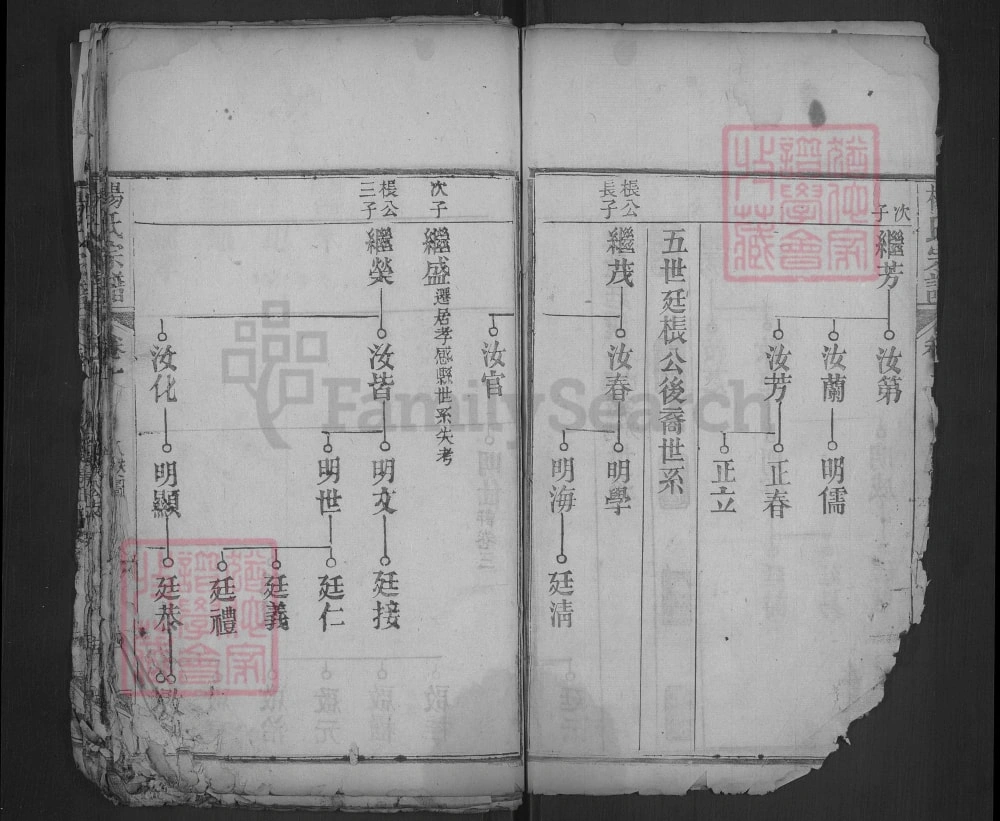 次子
繼芳
汝第
汝蘭
明儒
汝芳
正春
正立
五世廷棖公後裔世系
棖公長子
繼茂
汝春
明學
明海
廷清
汝官
次子
繼盛 遷居孝感縣世系失考
棖公三子
繼榮
汝皆
明文
廷接
明世
廷仁
廷義
廷禮
汝化
明顯
廷恭
楊氏宗譜
FamilySearch